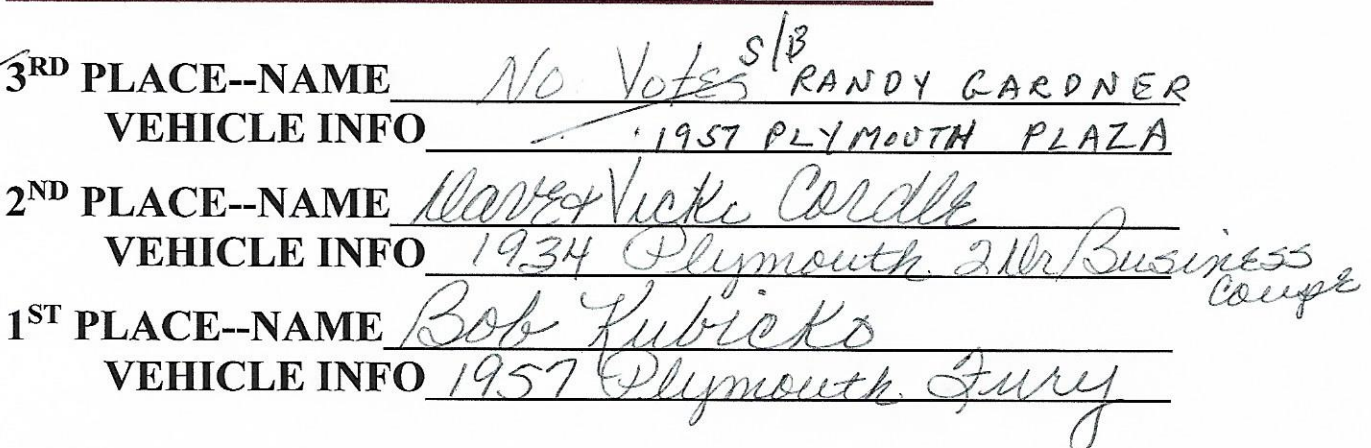 3RD PLACE--NAME No Votes S/B RANDY GARDNER
VEHICLE INFO 1957 PLYMOUTH PLAZA
2ND PLACE--NAME Dave & Vicki Cordle
VEHICLE INFO 1934 Plymouth 2 Dr/Business Coupe
1ST PLACE--NAME Bob Kubicko
VEHICLE INFO 1957 Plymouth Fury